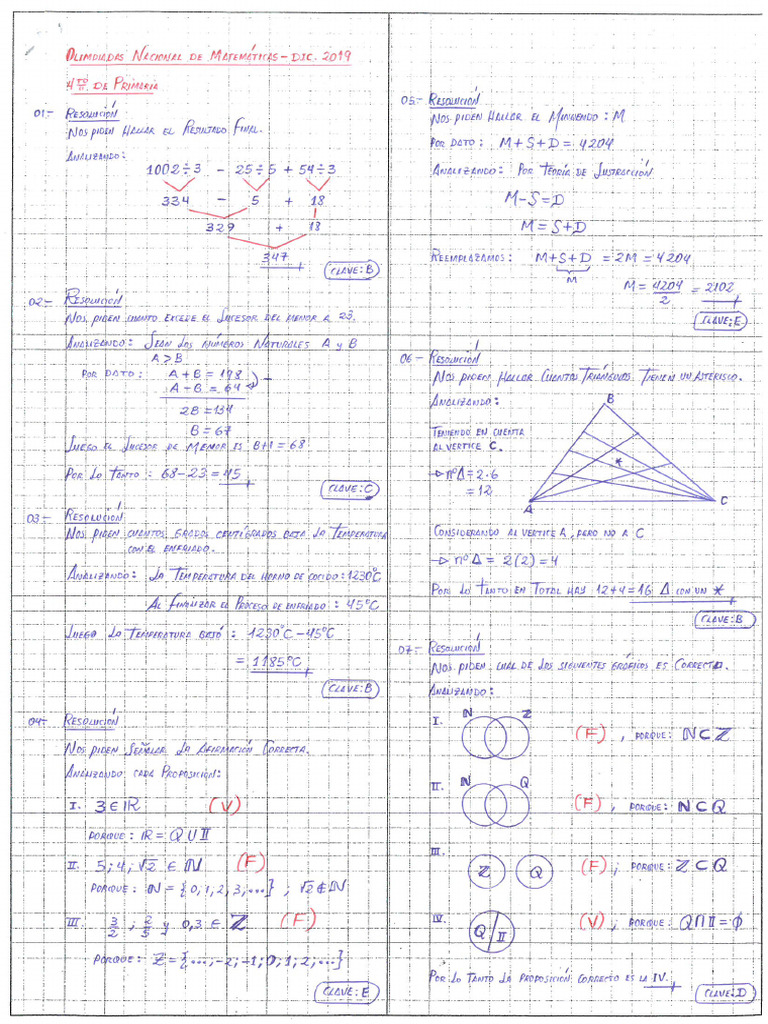 OLIMPIADAS NACIONAL DE MATEMÁTICAS - DIC. 2019
4TO DE PRIMARIA
01.- RESOLUCIÓN
NOS PIDEN HALLAR EL RESULTADO FINAL.
ANALIZANDO:
1002÷3 - 25÷5 + 54÷3
334 - 5 + 18
329 + 18
347
CLAVE: B
02.- RESOLUCIÓN
NOS PIDEN CUANTO EXCEDE EL SUCESOR DEL MENOR A 23.
ANALIZANDO: SEAN LOS NÚMEROS NATURALES A y B
A > B
POR DATO: A + B = 198
A - B = 64
2B = 134
B = 67
LUEGO EL SUCESOR DE MENOR ES B+1 = 68
POR LO TANTO: 68-23 = 45
CLAVE: C
03.- RESOLUCIÓN
NOS PIDEN CUANTOS GRADOS CENTÍGRADOS BAJA LA TEMPERATURA
CON EL ENFRIADO.
ANALIZANDO: LA TEMPERATURA DEL HORNO DE COCIDO: 1230°C
AL FINALIZAR EL PROCESO DE ENFRIADO: 45°C
LUEGO LA TEMPERATURA BAJÓ: 1230°C - 45°C
= 1185°C
CLAVE: B
04.- RESOLUCIÓN
NOS PIDEN SEÑALAR LA AFIRMACIÓN CORRECTA.
ANALIZANDO CADA PROPOSICIÓN:
I. 3 ∈ ℝ (V)
PORQUE: ℝ = ℚ ∪ 𝕀
II. 5; 4; √2 ∈ ℕ (F)
PORQUE: ℕ = {0, 1, 2, 3, ...}, √2 ∉ ℕ
III. 3/2; 2/5 y 0,3 ∈ ℤ (F)
PORQUE: ℤ = {...; -2; -1; 0; 1; 2; ...}
CLAVE: E
05.- RESOLUCIÓN
NOS PIDEN HALLAR EL MINUENDO: M
POR DATO: M + S + D = 4204
ANALIZANDO: POR TEORÍA DE SUSTRACCIÓN
M - S = D
M = S + D
REEMPLAZAMOS: M + S + D = 2M = 4204
M
M = 4204/2 = 2102
CLAVE: E
06.- RESOLUCIÓN
NOS PIDEN HALLAR CUANTOS TRIÁNGULOS TIENEN UN ASTERISCO.
ANALIZANDO:
B
TENIENDO EN CUENTA
AL VERTICE C.
*
→ n°Δ = 2.6
= 12
A
C
CONSIDERANDO AL VERTICE A, PERO NO A C
→ n°Δ = 2(2) = 4
POR LO TANTO EN TOTAL HAY 12+4 = 16 Δ CON UN *
CLAVE: B
07.- RESOLUCIÓN
NOS PIDEN CUAL DE LOS SIGUIENTES GRÁFICOS ES CORRECTO.
ANALIZANDO:
I. ℕ ℤ (F), PORQUE: ℕ ⊂ ℤ
II. ℕ ℚ (F), PORQUE: ℕ ⊂ ℚ
III. ℤ ℚ (F), PORQUE: ℤ ⊂ ℚ
IV. ℚ 𝕀 (V), PORQUE: ℚ ∩ 𝕀 = ∅
POR LO TANTO LA PROPOSICIÓN CORRECTO ES LA IV.
CLAVE: D